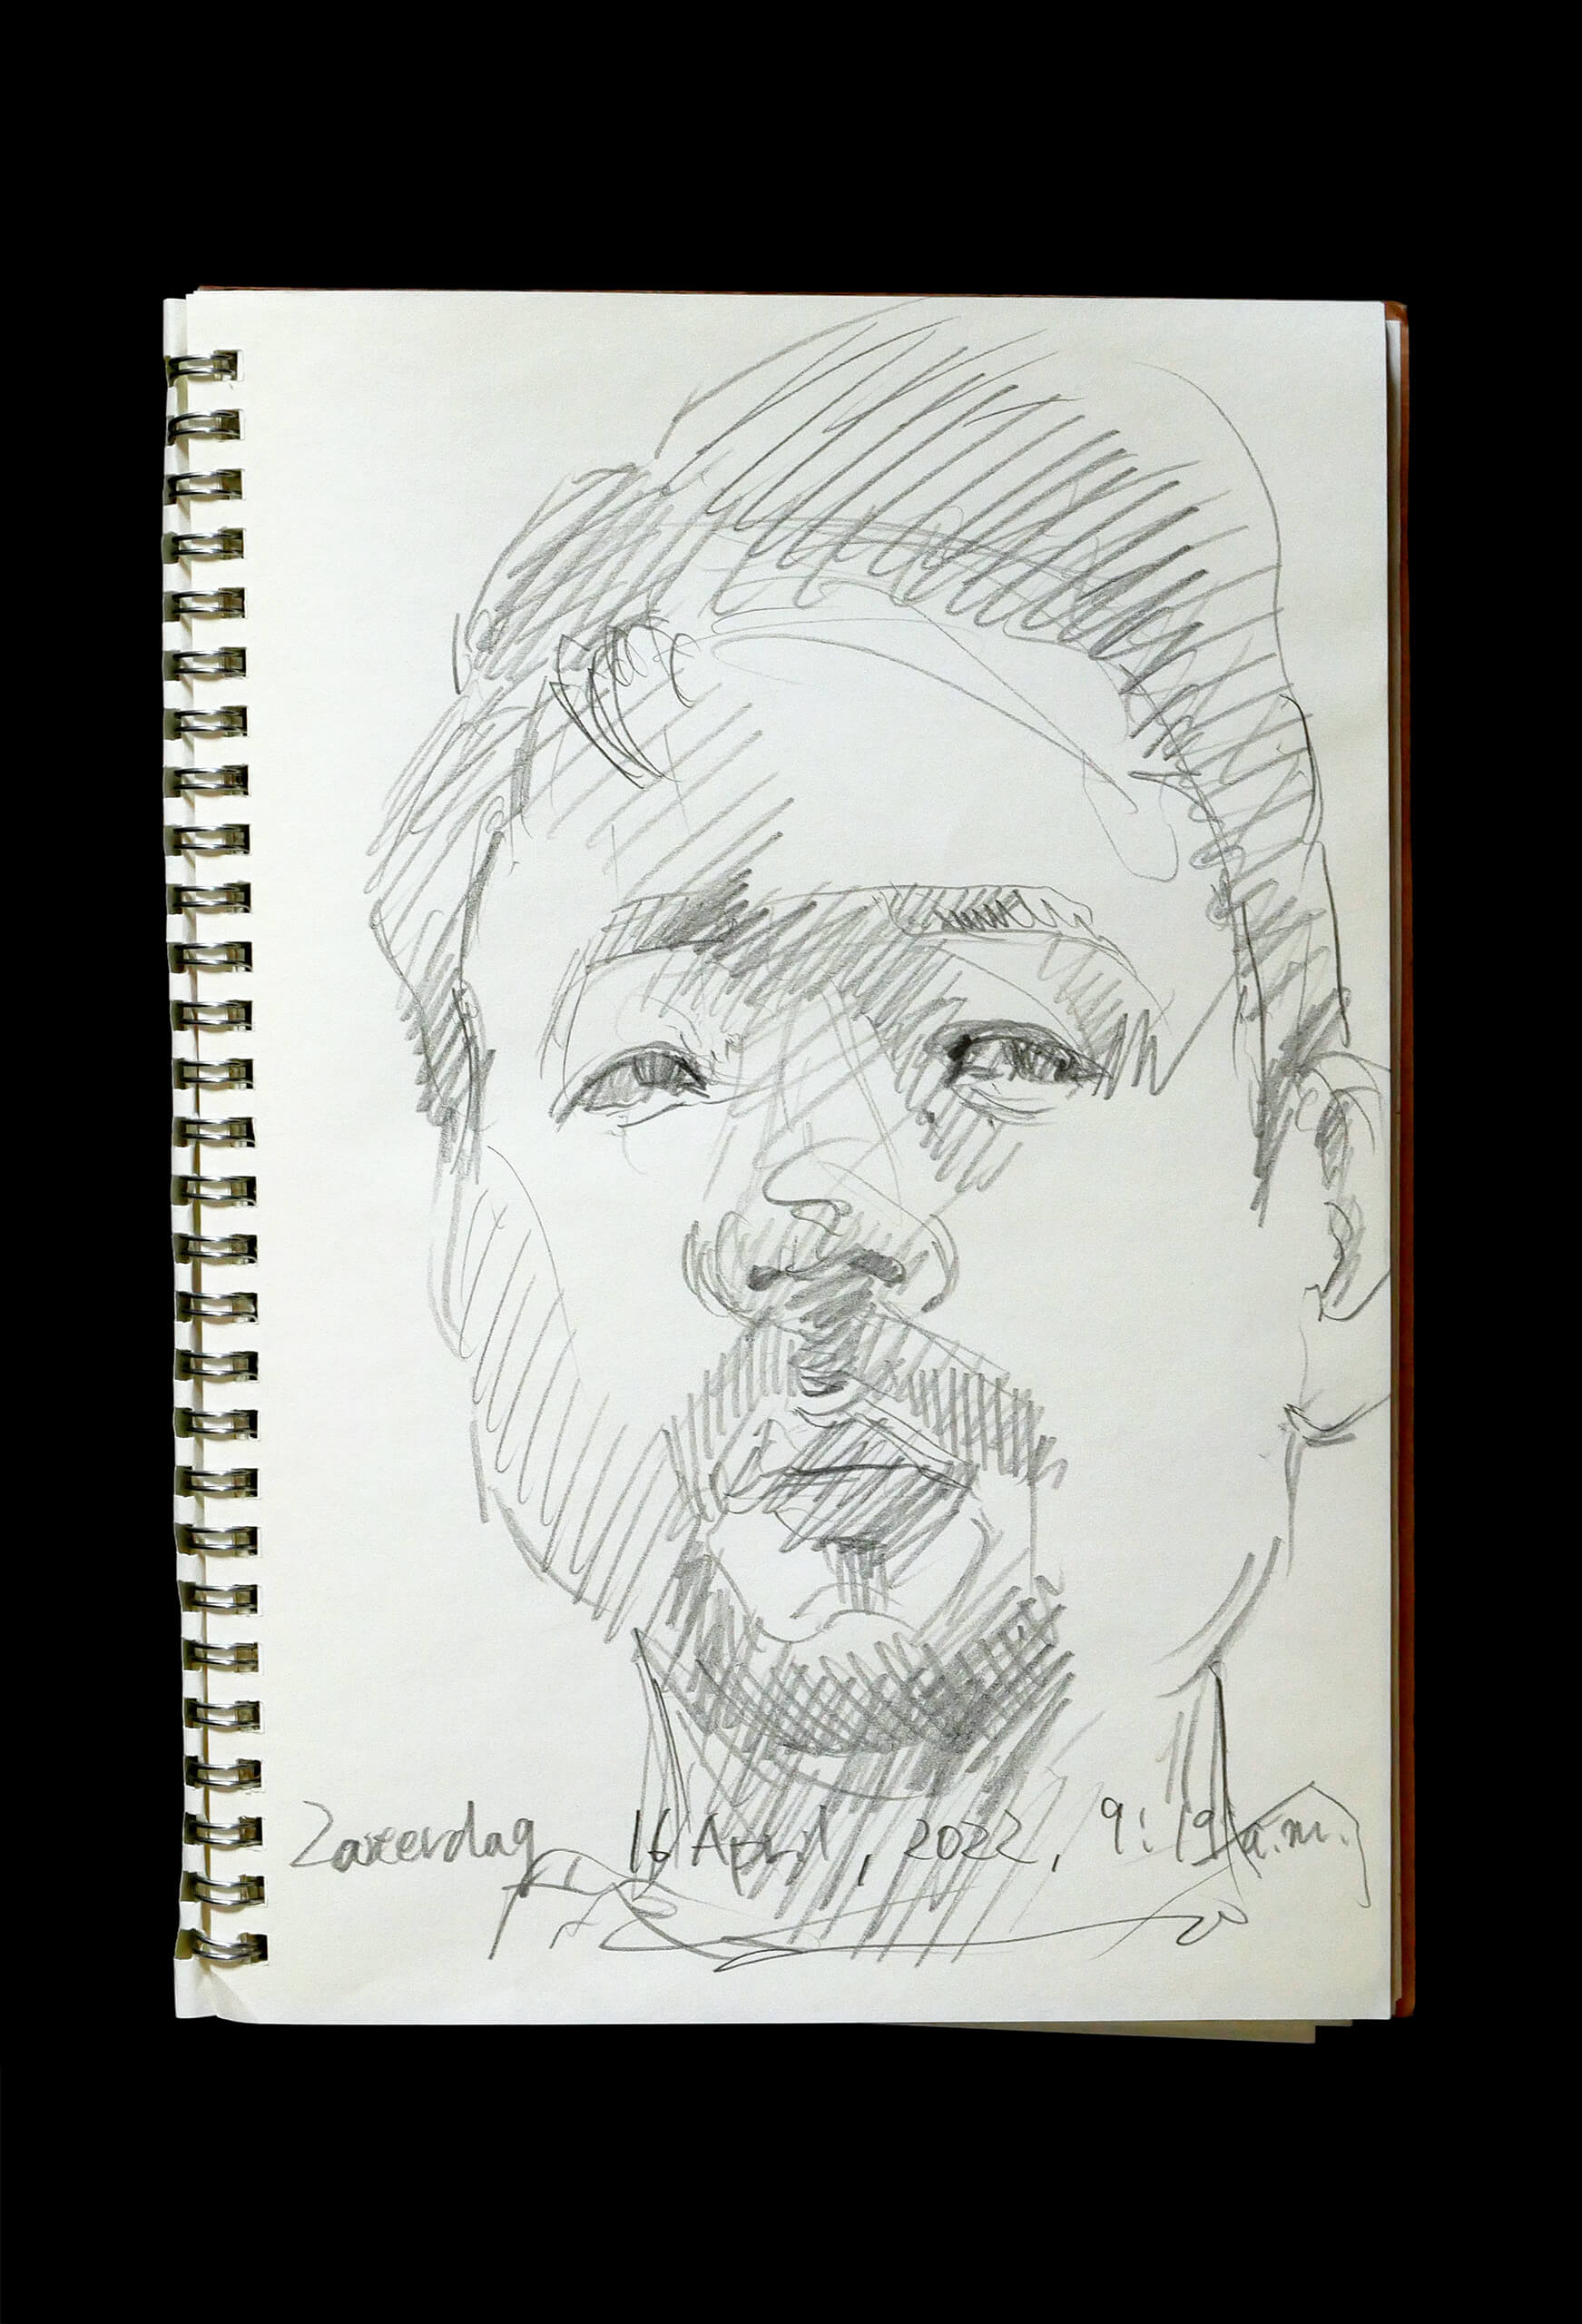 Zaterdag, 16 April, 2022, 9:19 a.m.